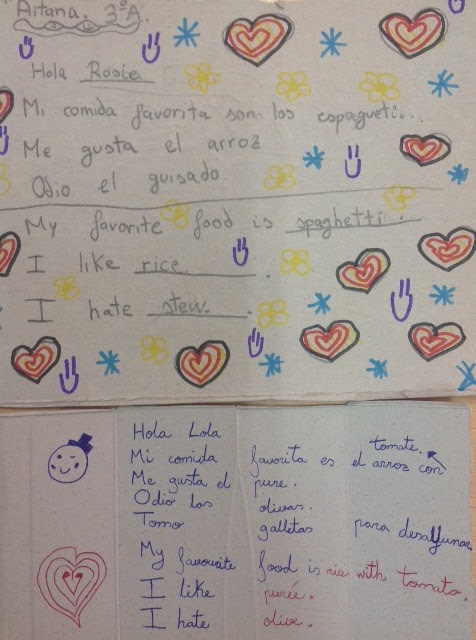 Aitana. 3ºA
Hola Rosie
Mi comida favorita son los espagueti...
Me gusta el arroz
Odio el guisado
My favorite food is spaghetti.
I like rice.
I hate stew.
Hola Lola
Mi comida favorita es el arroz con tomate.
Me gusta el pure.
Odio las olivas.
Tomo galletas para desallunar
My favourite food is rice with tomato.
I like purée.
I hate olive.